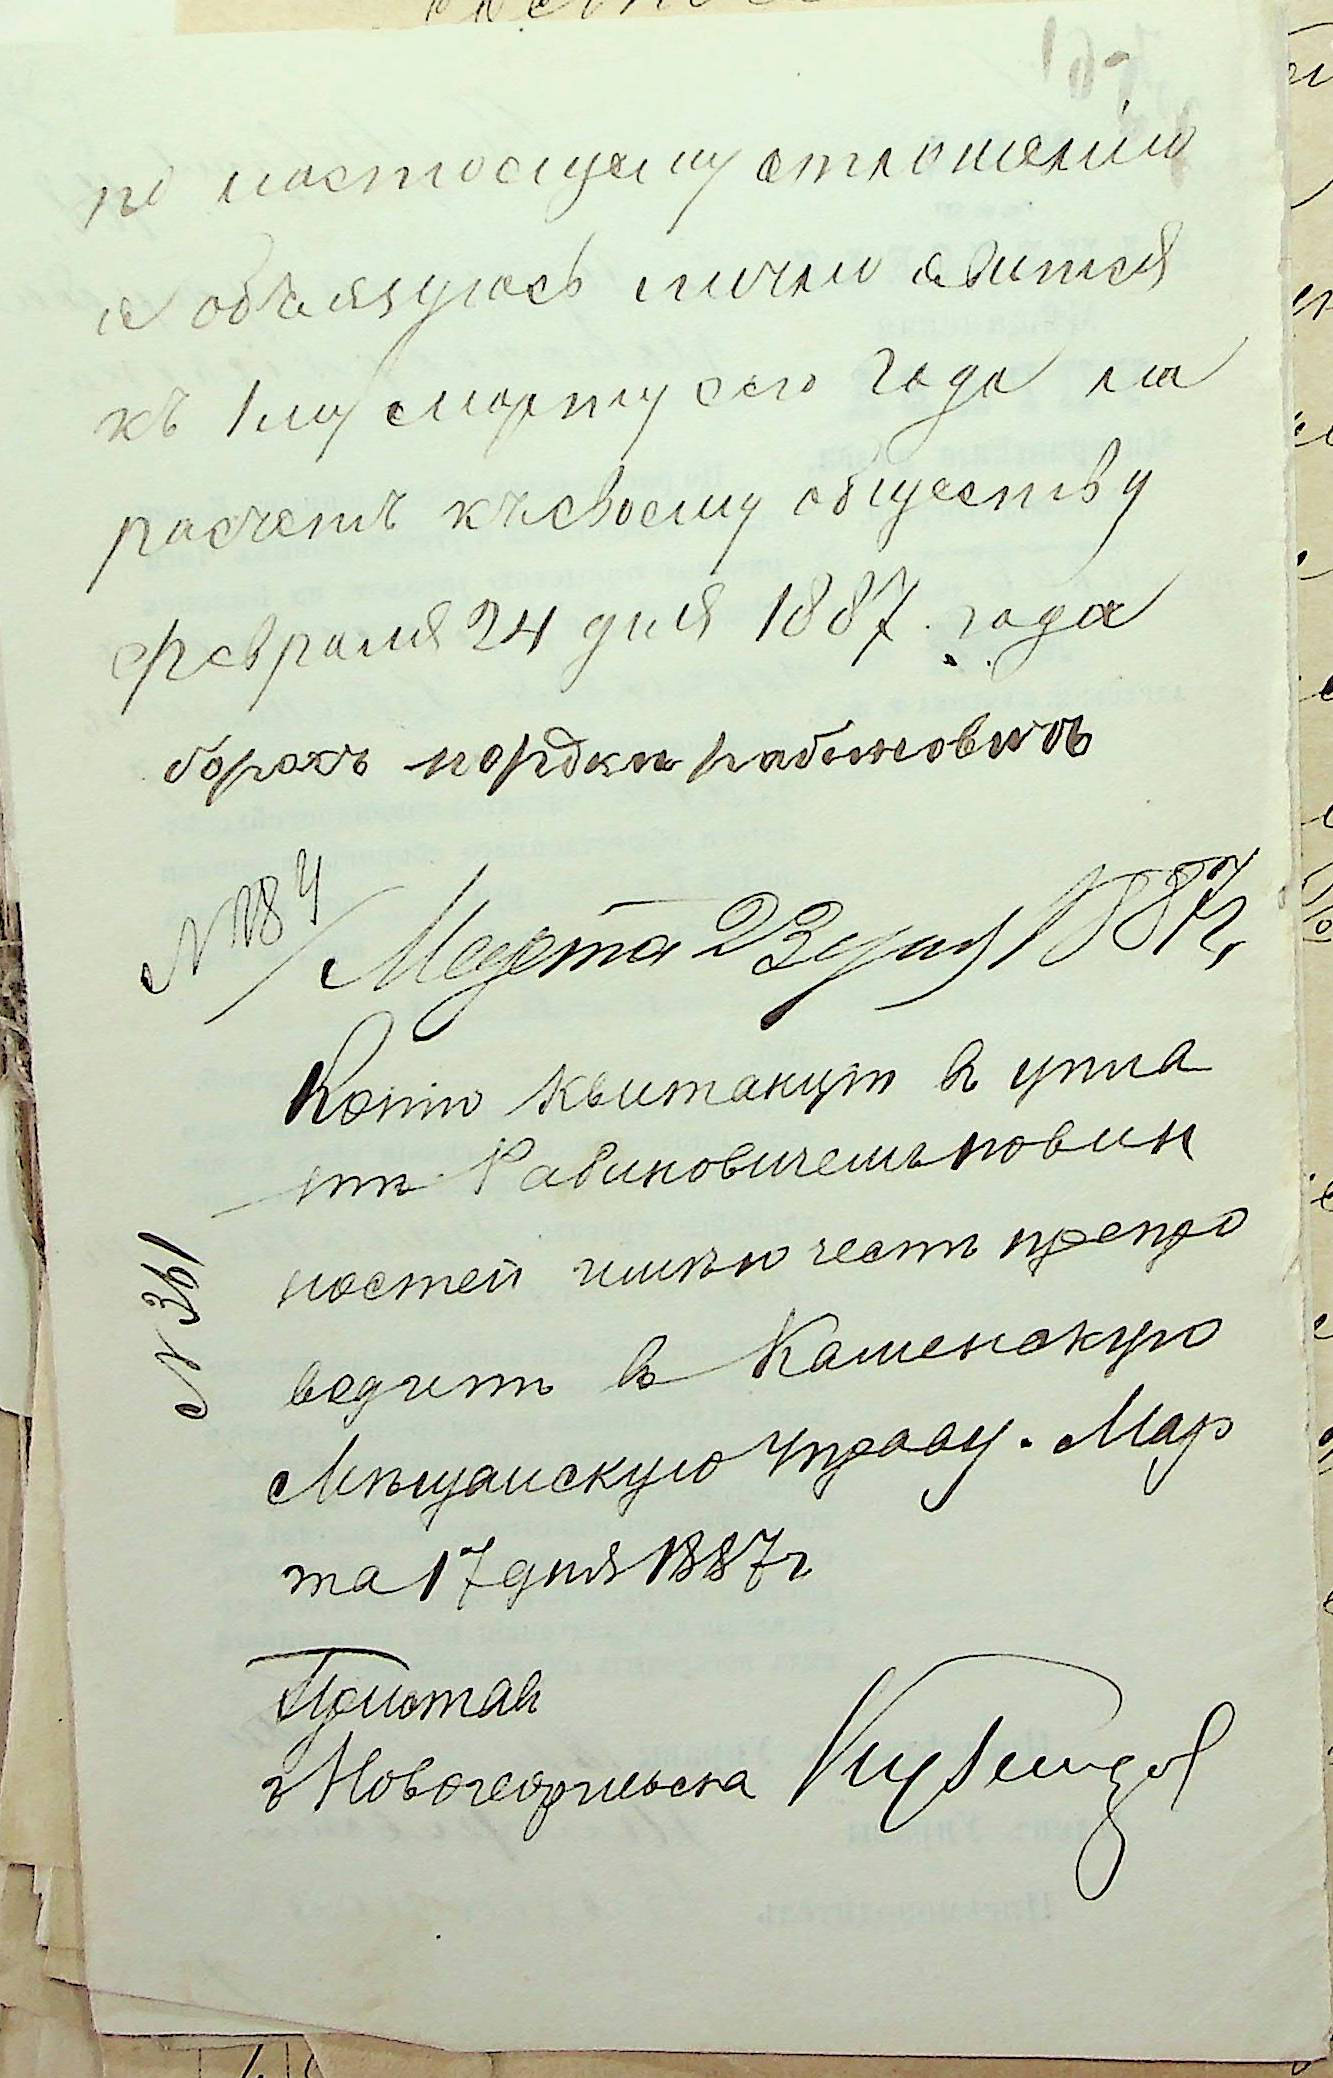 по настоящему отношению
я объязуюсь лично явится
къ 1му марту сего года на
расчетъ къ своему обществу
февраля 24 дня 1887 года
борохъ мордки рабиновичъ
N 184
Марта 23 дня 1887 г.
Копию квитанции въ упла
тѣ Рабиновичемъ повин
ностей имѣю честь препро
N 361
водить въ Каменскую
Мѣщанскую Управу. Мар
та 17 дня 1887 г
Приставъ
г Новогеоргиевска